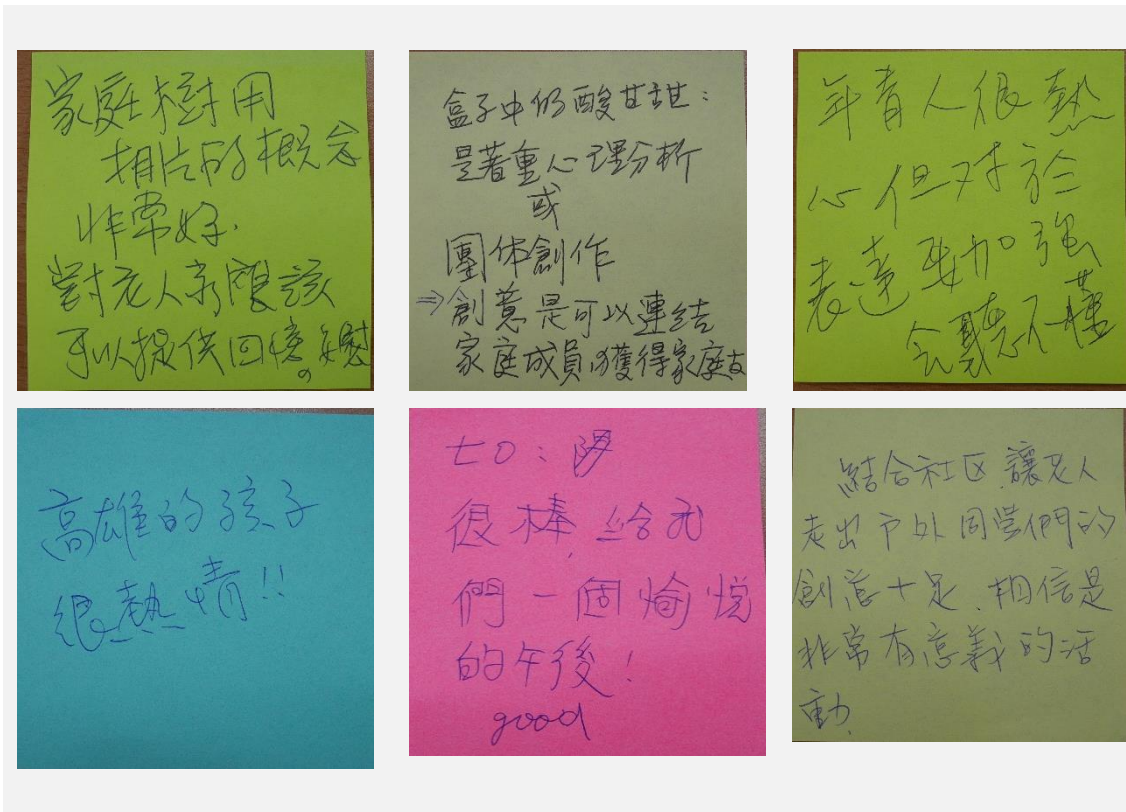 家庭樹用
相片的概念
非常好.
對老人家應該
可以提供回憶。
盒子中的酸甘甜：
是著重心理分析
或
團体創作
⇒創意是可以連結
家庭成員,獲得家庭支
年青人很熱
心但对於
表達要加強
会聽不懂
高雄的孩子
很熱情!!
七口：
很棒,給我
們一個愉悅
的午後！
good
結合社区,讓老人
走出户外同學們的
創意十足,相信是
非常有意義的活
動